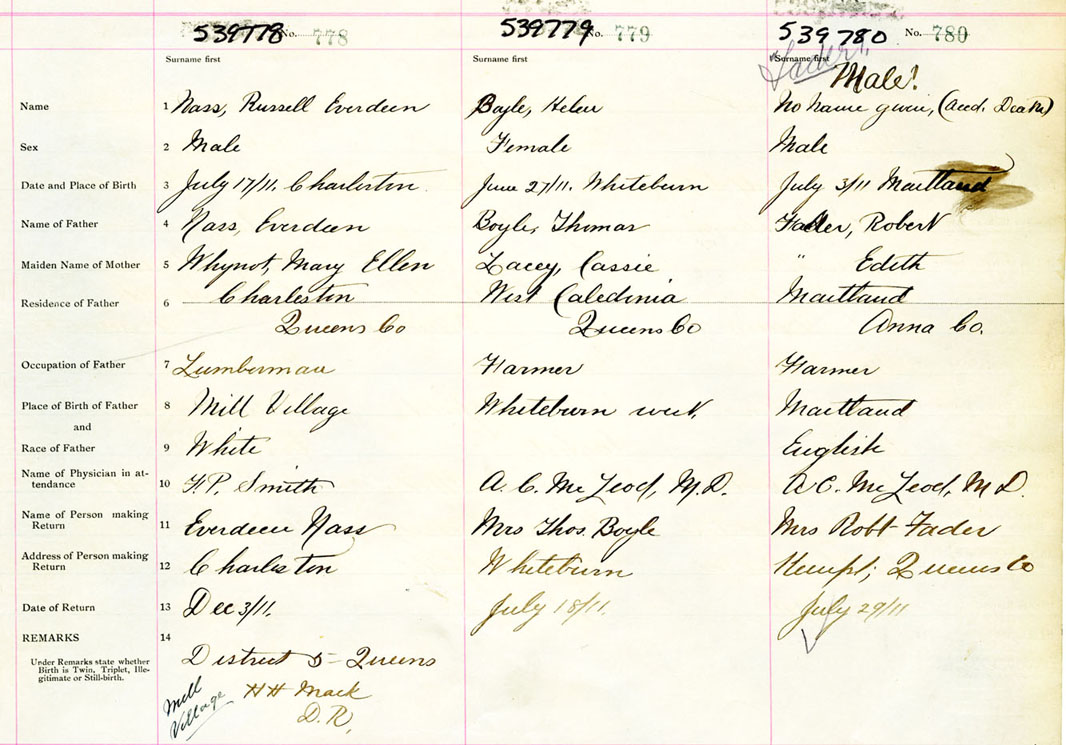 539778 No. 778 539779 No. 779 539780 No. 780
Surname first Surname first Surname first
Fader,
Male!
Name 1 Nass, Russell Everdeen Boyle, Helen No name given, (Accd. Death)
Sex 2 Male Female Male
Date and Place of Birth 3 July 17/11. Charleston June 27/11. Whiteburn July 3/11 Maitland
Name of Father 4 Nass, Everdeen Boyle, Thomas Fader, Robert
Maiden Name of Mother 5 Whynot, Mary Ellen Lacey, Cassie " Edith
Residence of Father 6 Charleston West Caledinia Maitland
Queens Co Queens Co Anna Co.
Occupation of Father 7 Lumberman Farmer Farmer
Place of Birth of Father 8 Mill Village Whiteburn west. Maitland
and
Race of Father 9 White English
Name of Physician in at-
tendance 10 F.P. Smith A. C. McLeod, M.D. A C. McLeod, M D.
Name of Person making
Return 11 Everdeen Nass Mrs Thos. Boyle Mrs Robt Fader
Address of Person making
Return 12 Charleston Whiteburn Kempt, Queens Co
Date of Return 13 Dec 3/11. July 18/11. July 29/11
REMARKS 14
Under Remarks state whether
Birth is Twin, Triplet, Ille-
gitimate or Still-birth.
District 5 - Queens
HH Mack
D.R,
Mill
Village